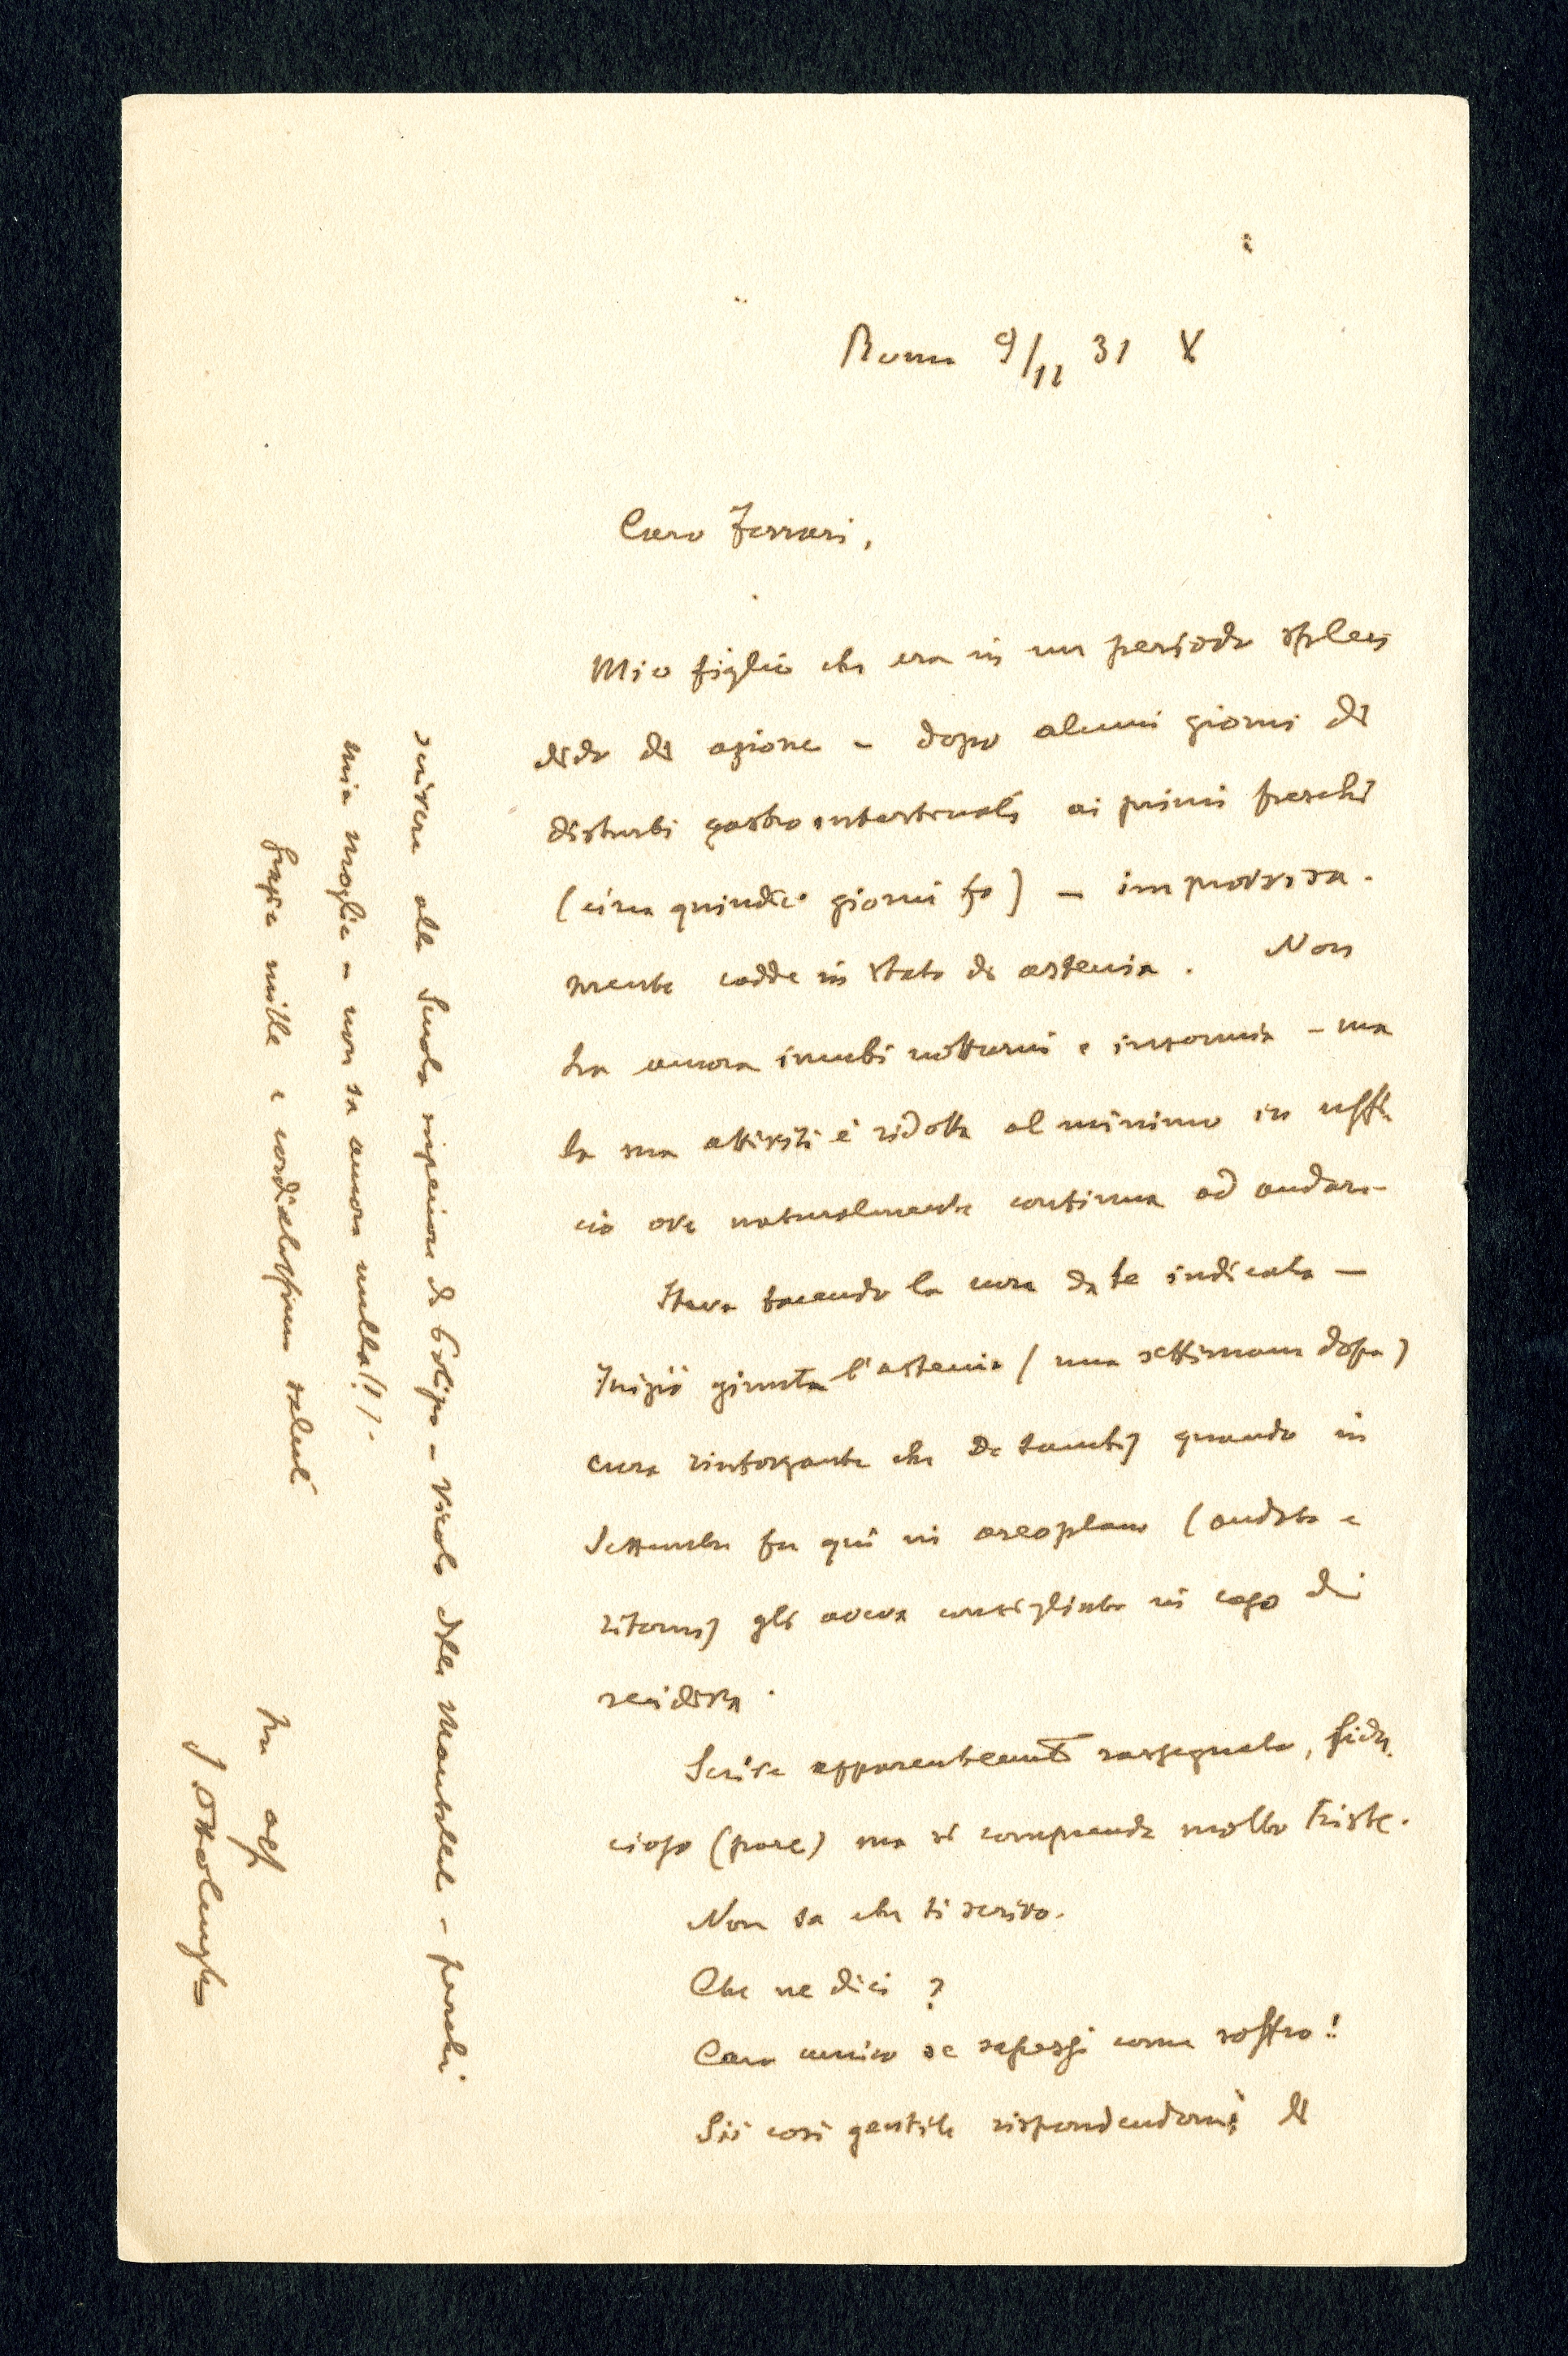 Roma 9/11 31 X
Caro Ferrari,
Mio figlio che era in un periodo splen
dido di azione - dopo alcuni giorni di
disturbi gastrointestinali ai primi freschi
(circa quindici giorni fa) - improvvisa-
mente cadde in stato di astenia. Non
ha ancora incubi notturni e insonnia - ma
la sua attività è ridotta al minimo in uffi
cio ove naturalmente continua ad andare
Stava facendo la cura da te indicata -
Iniziò giunta l'astenia (una settimana dopo)
cura rinforzante che De Sanctis quando in
Settembre fu qui in areoplano (andata e
ritorno) gli aveva consigliato in caso di
recidiva.
Scrive apparentemente rassegnato, fidu
cioso (pare) ma si comprende molto triste.
Non sa che ti scrivo.
Che ne dici?
Caro amico se sapessi come soffro!
Sii così gentile rispondendomi di
scrivere alla Scuola superiore di Polizia - Vicolo delle Mantellate - perchè
mia moglie - non sa ancora nulla!!).
Grazie mille e cordialissimi saluti
tuo aff
S Ottolenghi